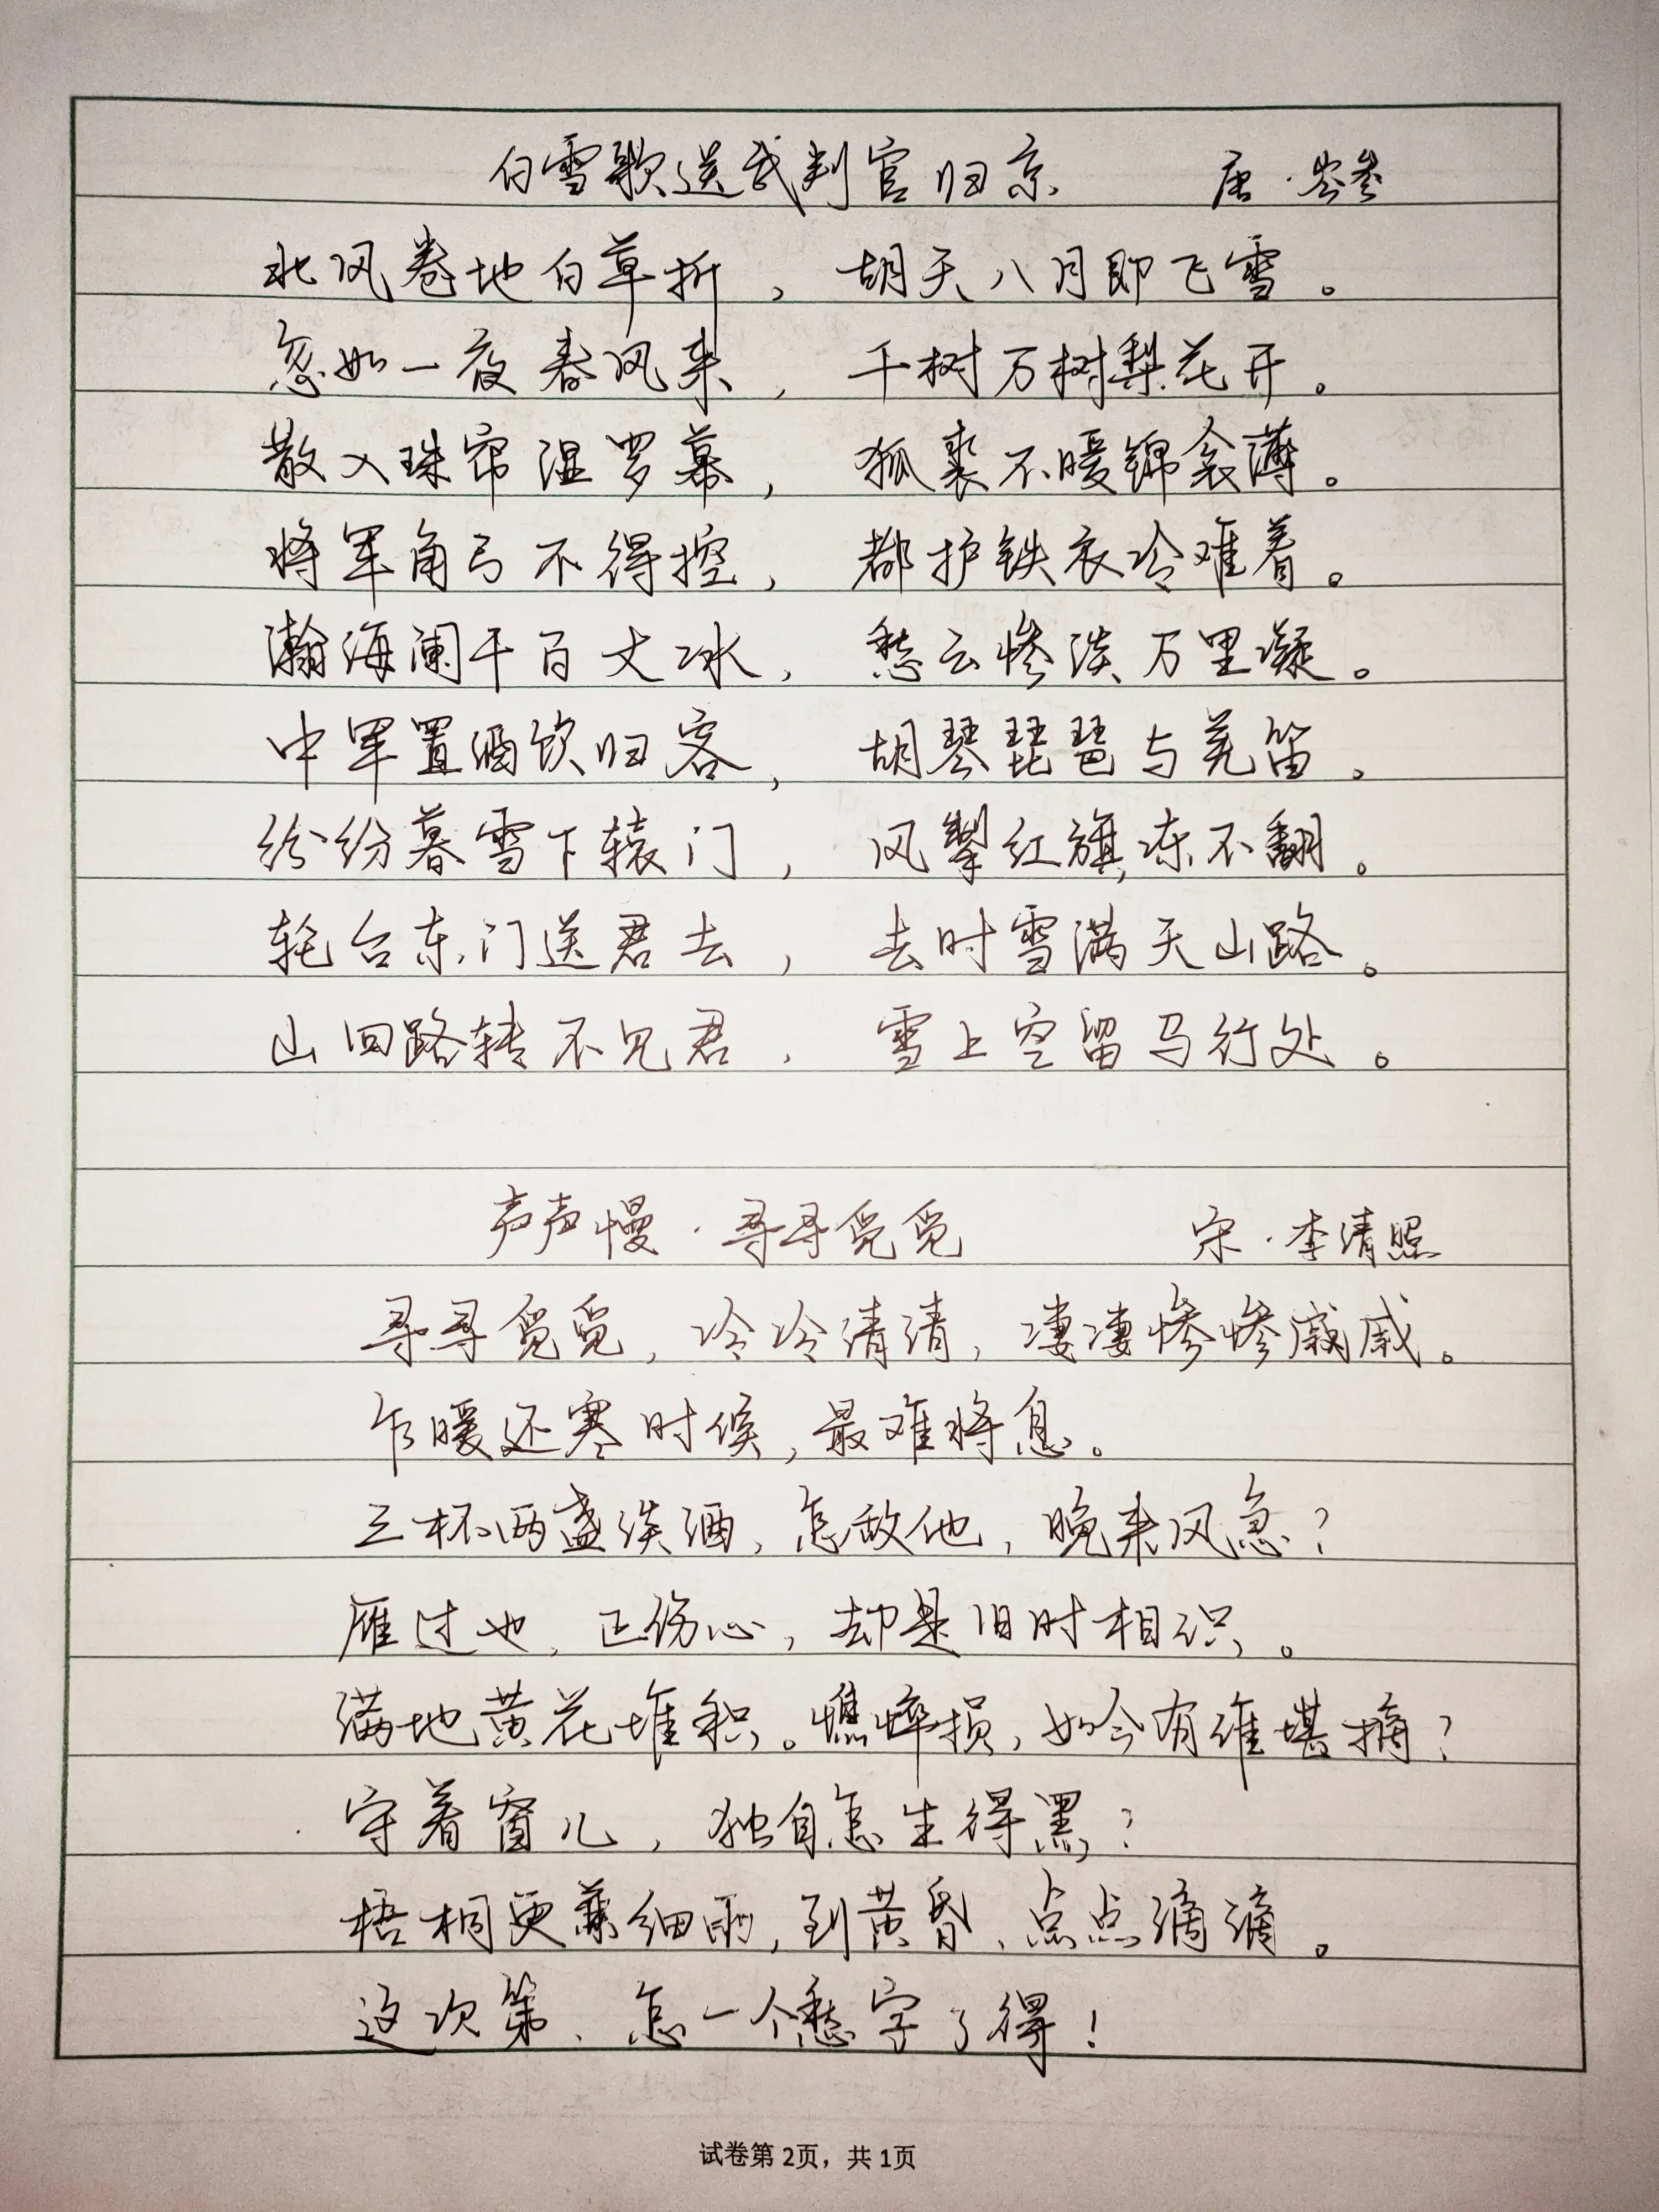 白雪歌送武判官归京 唐·岑参
北风卷地白草折，胡天八月即飞雪。
忽如一夜春风来，千树万树梨花开。
散入珠帘湿罗幕，狐裘不暖锦衾薄。
将军角弓不得控，都护铁衣冷难着。
瀚海阑干百丈冰，愁云惨淡万里凝。
中军置酒饮归客，胡琴琵琶与羌笛。
纷纷暮雪下辕门，风掣红旗冻不翻。
轮台东门送君去，去时雪满天山路。
山回路转不见君，雪上空留马行处。
声声慢·寻寻觅觅 宋·李清照
寻寻觅觅，冷冷清清，凄凄惨惨戚戚。
乍暖还寒时候，最难将息。
三杯两盏淡酒，怎敌他，晚来风急？
雁过也，正伤心，却是旧时相识。
满地黄花堆积。憔悴损，如今有谁堪摘？
守着窗儿，独自怎生得黑？
梧桐更兼细雨，到黄昏、点点滴滴。
这次第，怎一个愁字了得！
试卷第2页，共1页